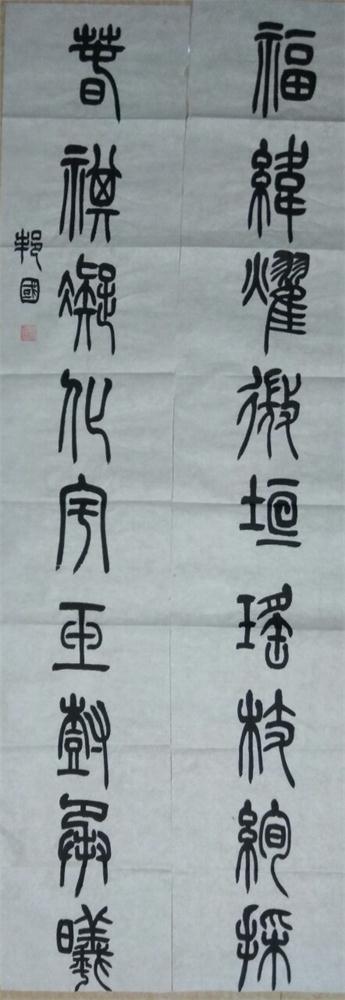 福緯燿微垣瑤枝絢採
春祺凝化宇玉樹承曦
邦國